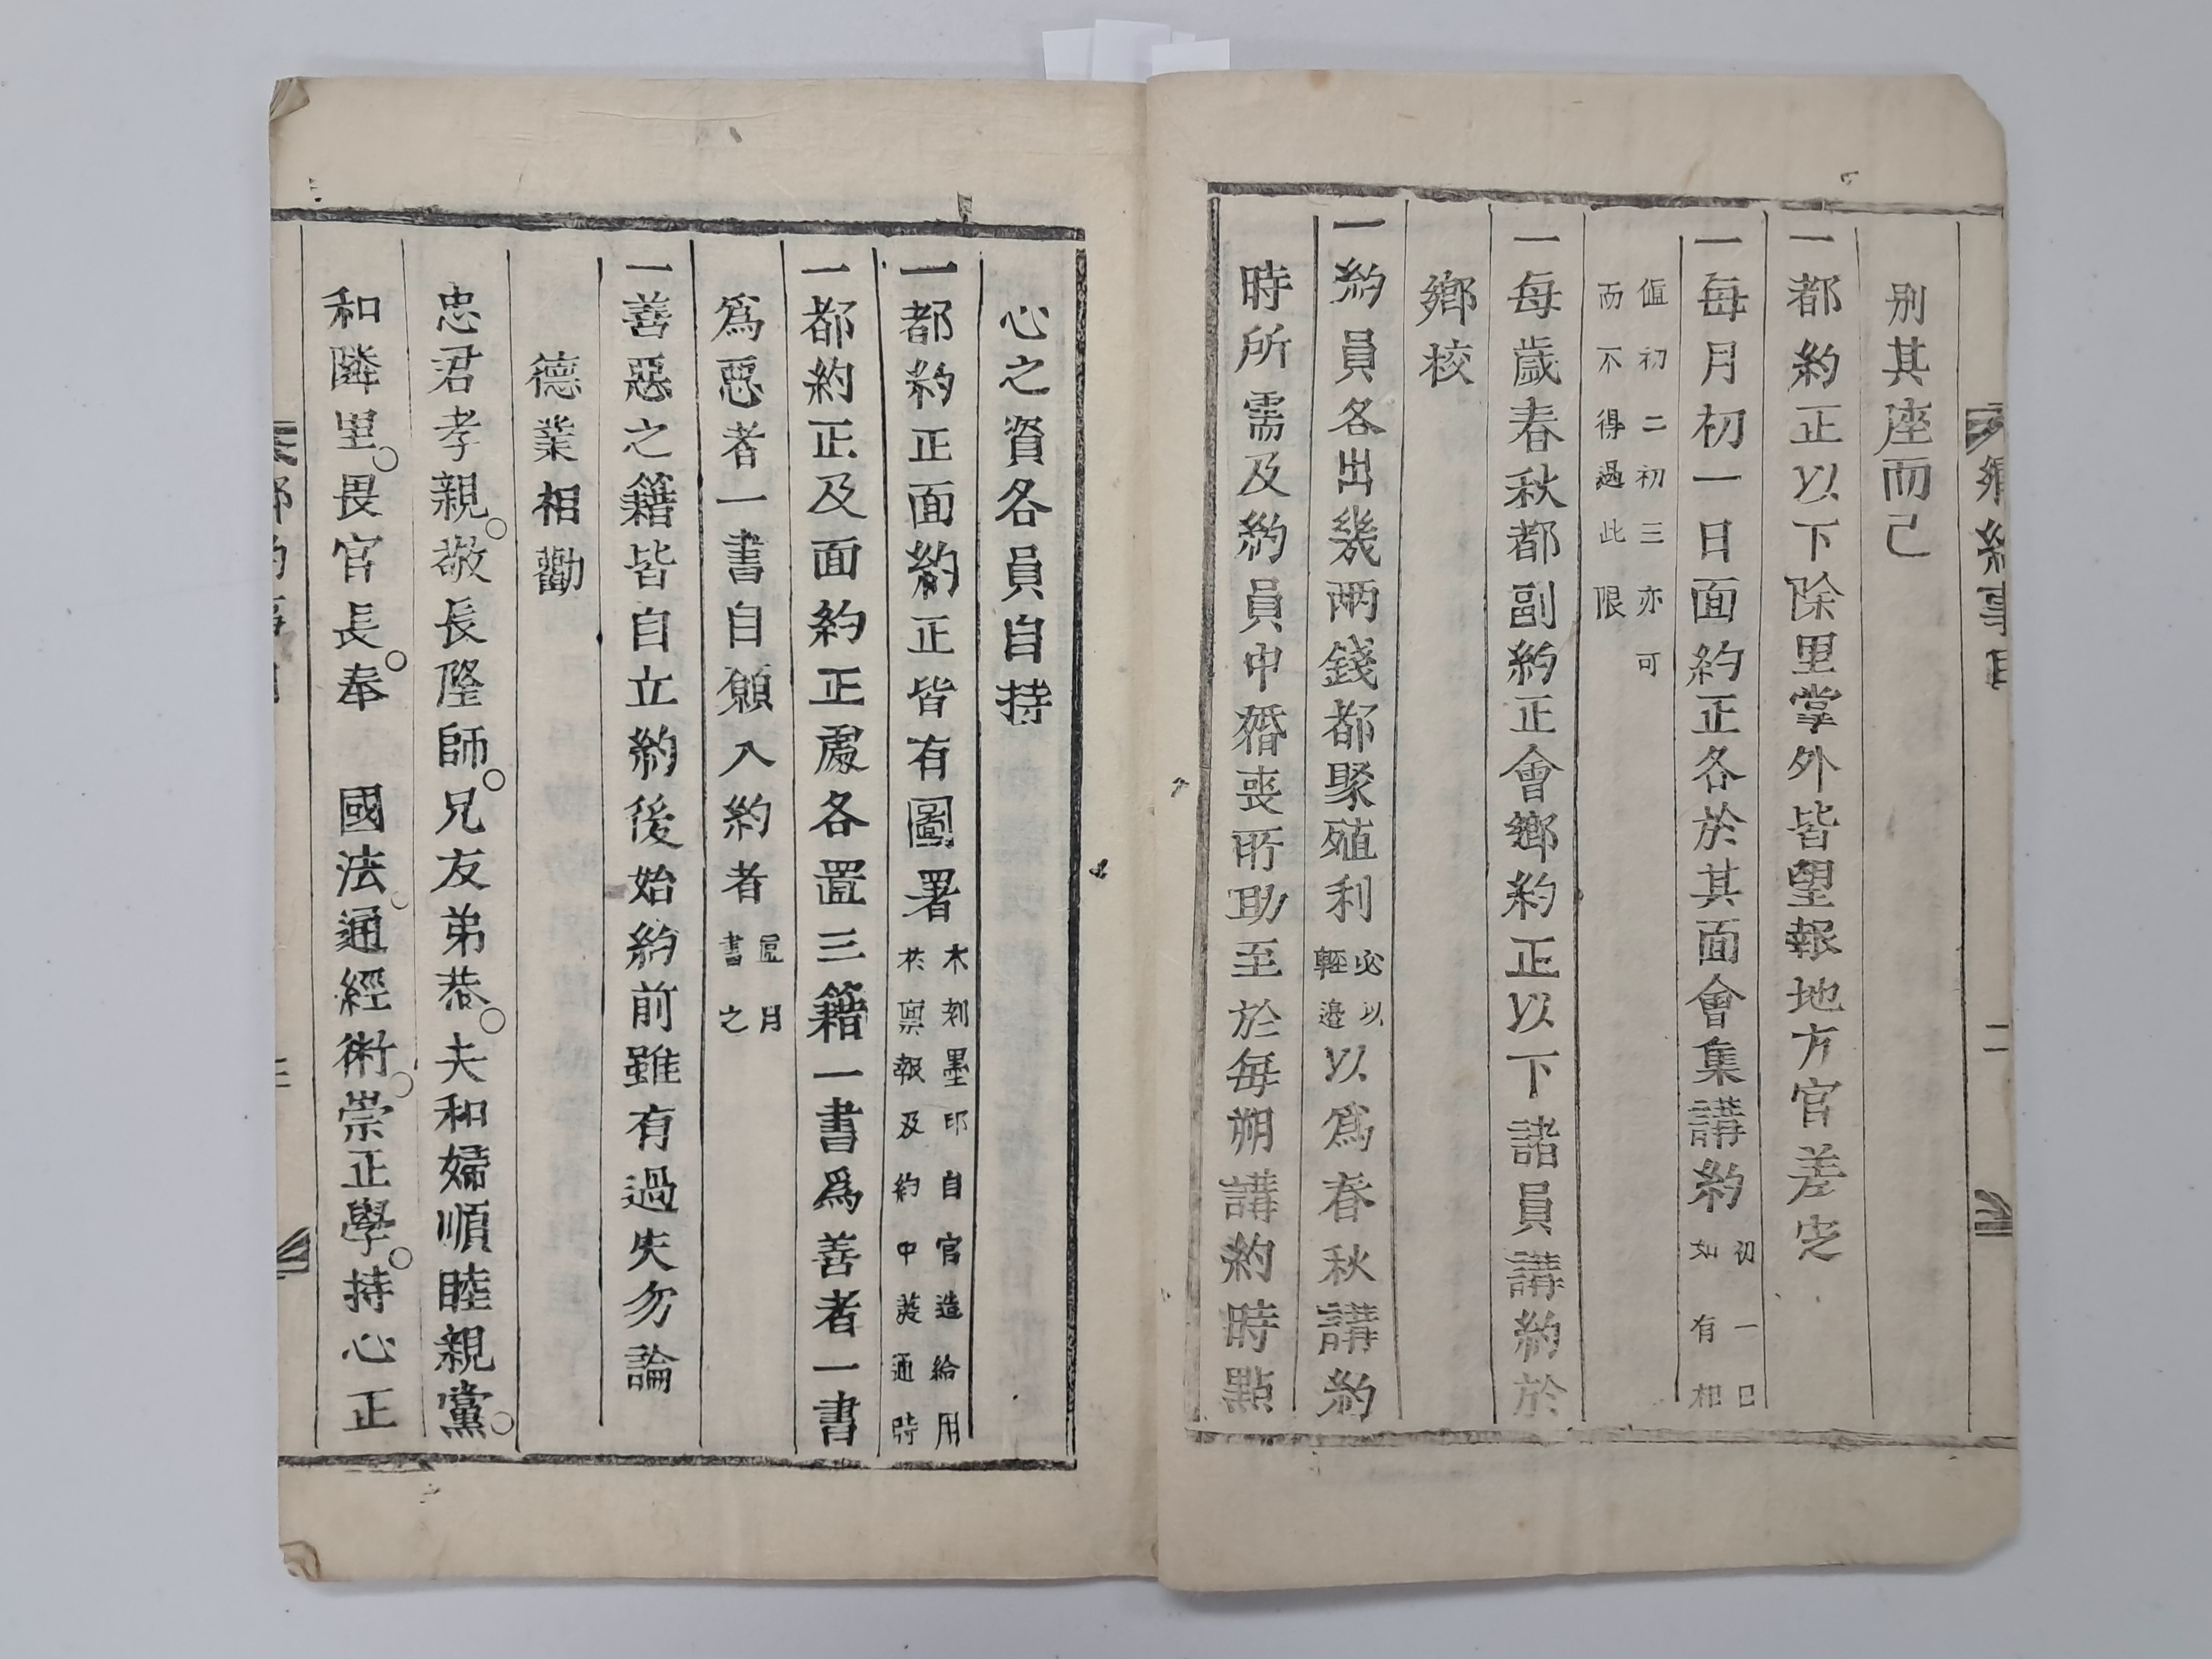 鄕約事目
二
別其座而已
一都約正以下除里掌外皆望報地方官差定
一每月初一日面約正各於其面會集講約初一日
如有相
値初二初三亦可
而不得過此限
一每歲春秋都副約正會鄕約正以下諸員講約於
鄕校
一約員各出幾兩錢都聚殖利必以
輕邉以爲春秋講約
時所需及約員中婚喪所助至於每朔講約時點
心之資各員自持
一都約正面約正皆有圖署木刻墨印自官造給用
於稟報及約中通時
一都約正及面約正處各置三籍一書爲善者一書
爲惡者一書自願入約者月
書之
一善惡之籍皆自立約後始約前雖有過失勿論
德業相勸
忠君孝親○敬長隆師○兄友弟恭○夫和婦順睦親黨○
和隣里○畏官長○奉 國法○通經術○崇正學○持心正